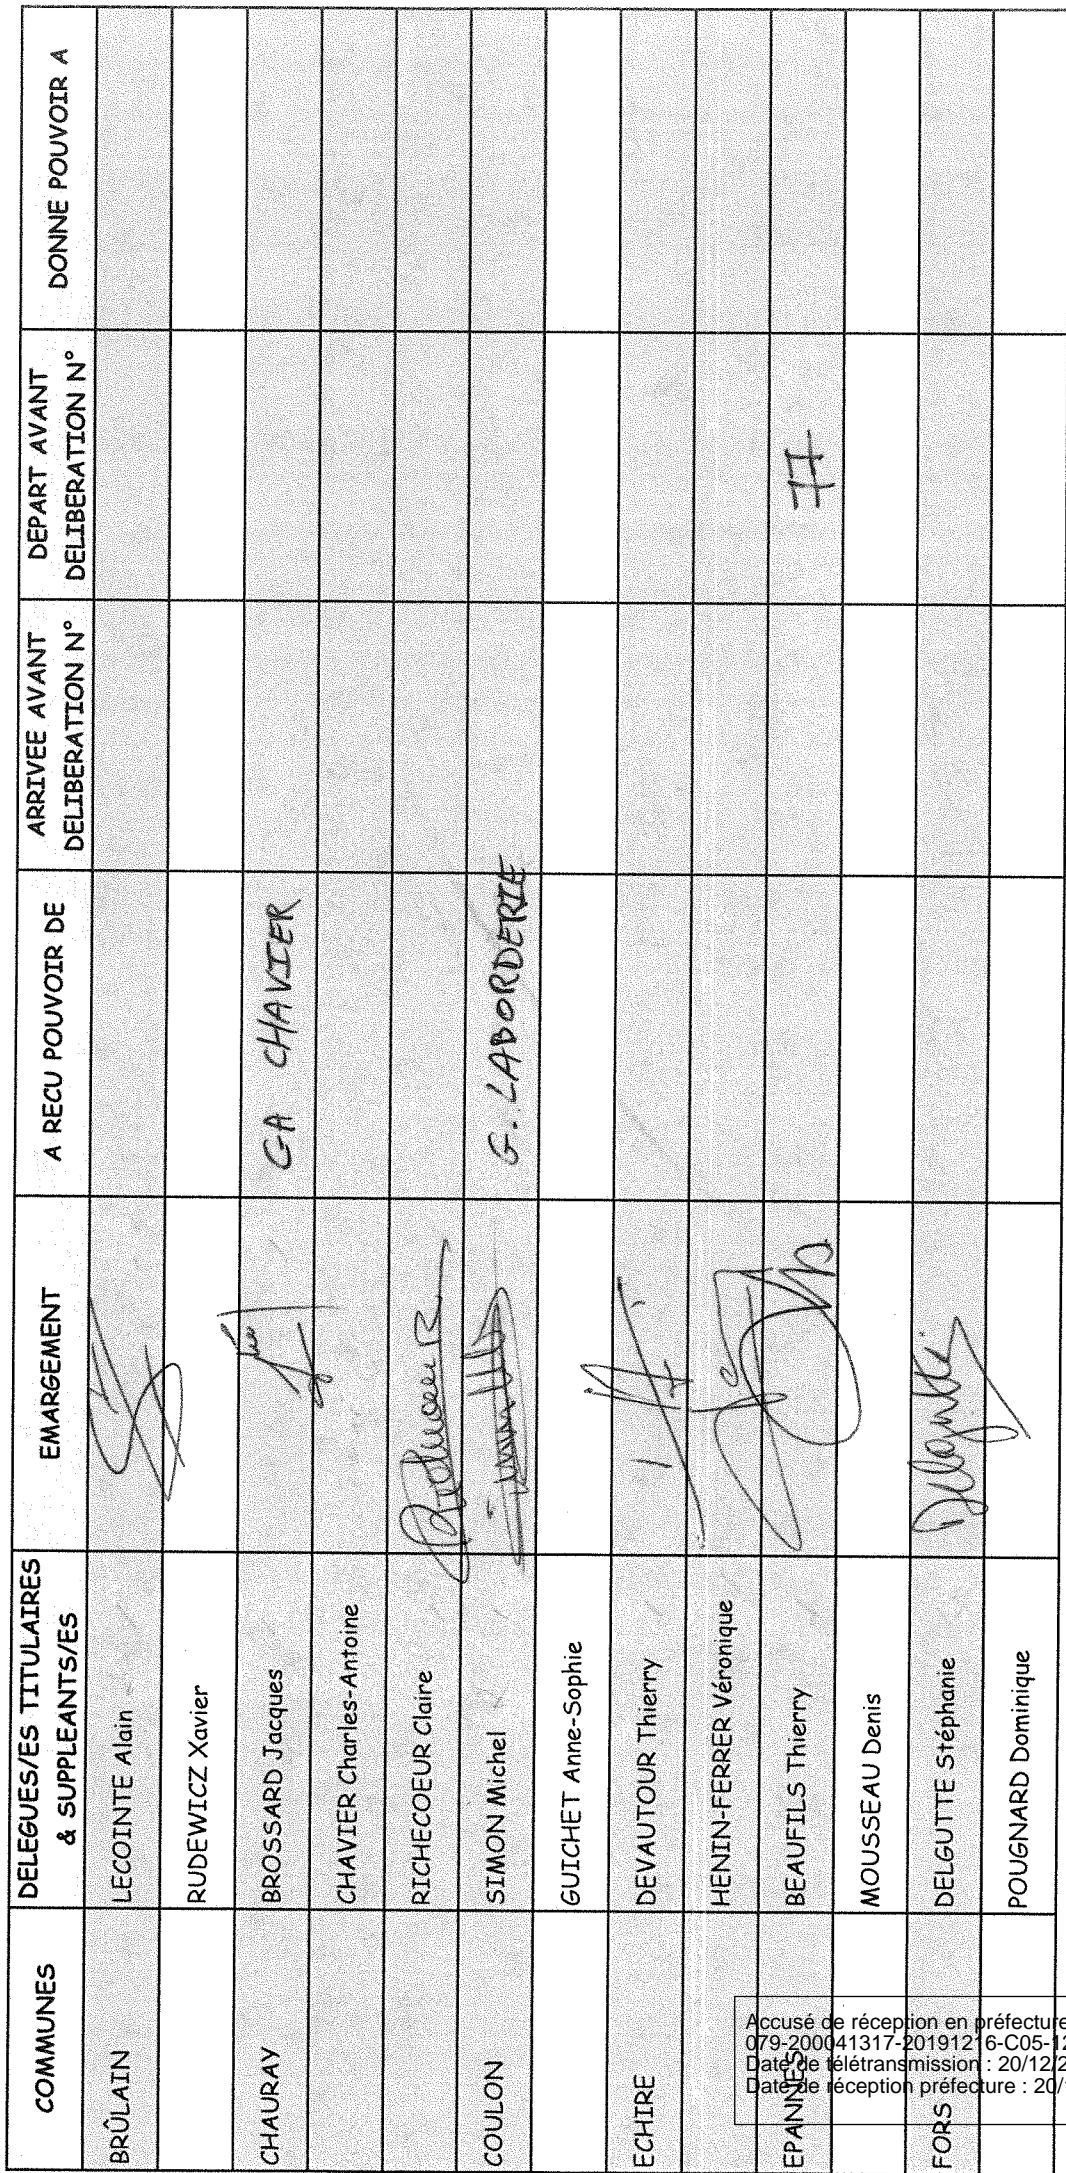 COMMUNES DELEGUES/ES TITULAIRES & SUPPLEANTS/ES EMARGEMENT A RECU POUVOIR DE ARRIVEE AVANT DELIBERATION N° DEPART AVANT DELIBERATION N° DONNE POUVOIR A
BRÛLAIN LECOINTE Alain
RUDEWICZ Xavier
CHAURAY BROSSARD Jacques CA CHAVIER
CHAVIER Charles-Antoine
RICHECOEUR Claire
COULON SIMON Michel G. LABORDERIE
GUICHET Anne-Sophie
ECHIRE DEVAUTOUR Thierry
HENIN-FERRER Véronique
EPANNES BEAUFILS Thierry 77
MOUSSEAU Denis
FORS DELGUTTE Stéphanie Delgutte
POUGNARD Dominique
Accusé de réception en préfecture
079-200041317-20191216-C05-12
Date de télétransmission : 20/12/2
Date de réception préfecture : 20/